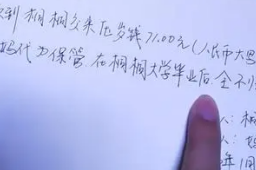 到桐桐交来压岁钱7100元(人民币大写
妈代为保管.在桐桐大学毕业后全不
人:桐
人:
年1月